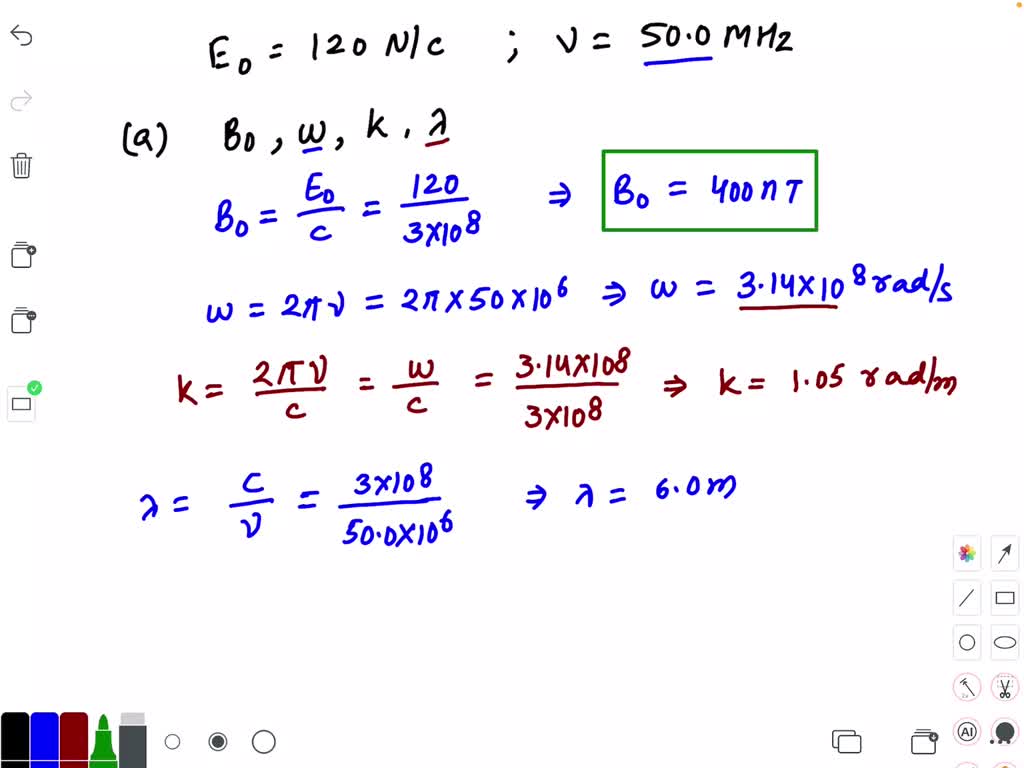 E₀ = 120 N/C ; ν = 50.0 MHz
(a) B₀, ω, k, λ
B₀ = E₀/c = 120/3×10⁸ ⇒ B₀ = 400 nT
ω = 2πν = 2π×50×10⁶ ⇒ ω = 3.14×10⁸ rad/s
k = 2πν/c = ω/c = 3.14×10⁸/3×10⁸ ⇒ k = 1.05 rad/m
λ = c/ν = 3×10⁸/50.0×10⁶ ⇒ λ = 6.0m
AI